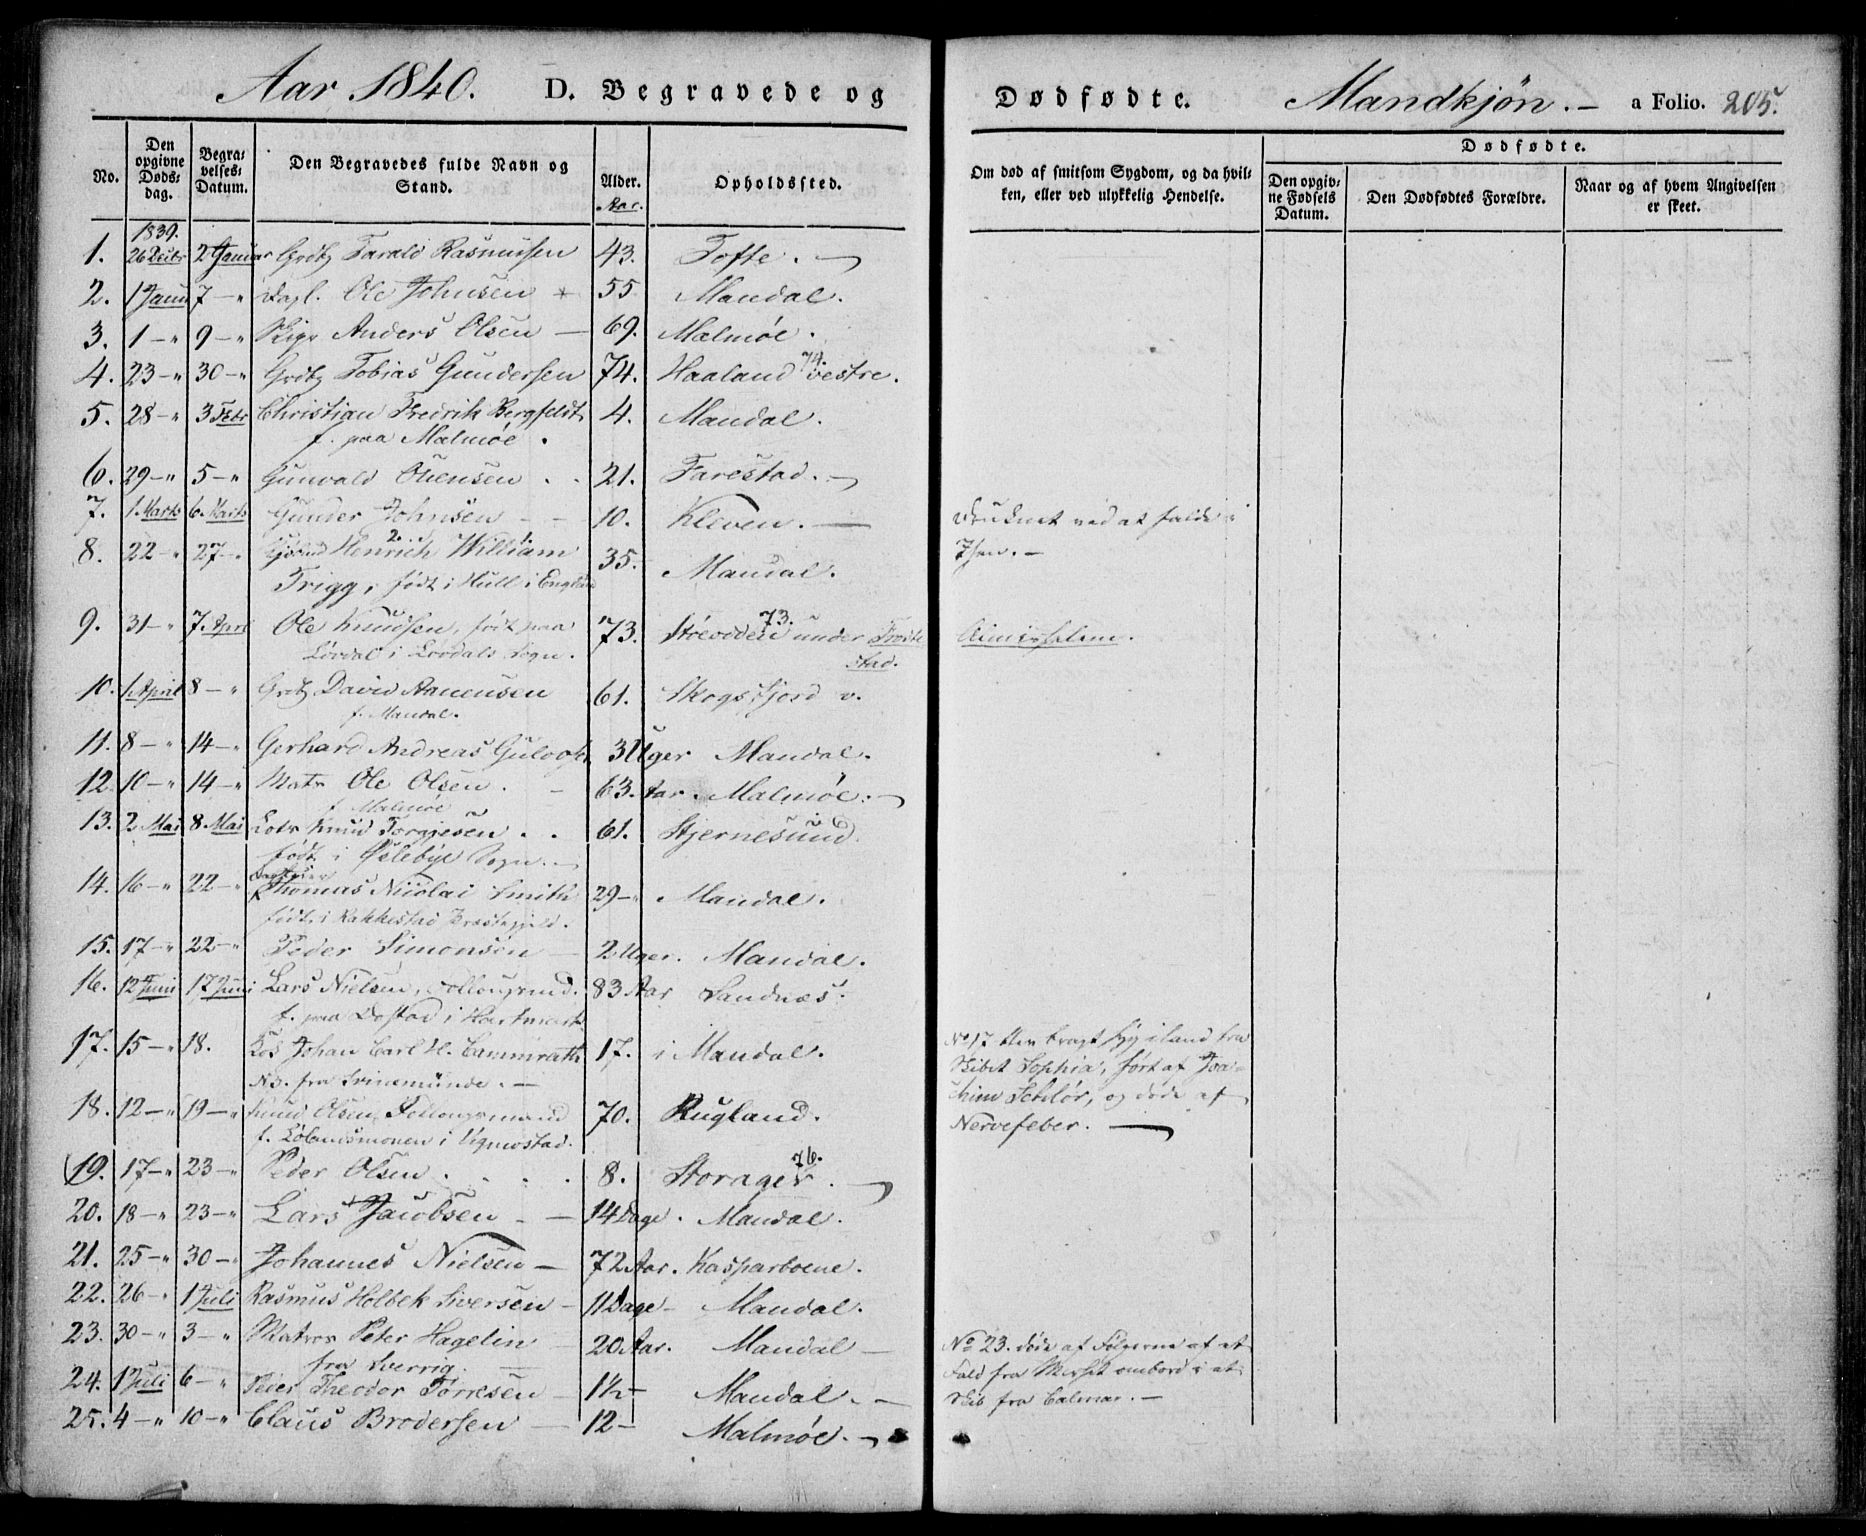 Aar 1840. D. Begravede og Dødfødte. Mandkjøn. – a Folio. 205.
No. | Den opgivne Døds-dag. | Begra-velses-Datum. | Den Begravedes fulde Navn og Stand. | Alder. Aar. | Opholdssted. | Om død af smitsom Sygdom, og da hvil-ken, eller ved ulykkelig Hendelse. | Dødfødte. | Den opgiv-ne Fødsels Datum. | Den Dødfødtes Forældre. | Naar og af hvem Angivelsen er skeet.
1839.
1. 26 Decbr 2 Januar Grdbr Tarald Rasmussen 43. Tofte. –
2. 1 Janu 7 – " Dagl. Ole Johnsen 55 Mandal.
3. 1 – " 9 – " Anders Olsen – 69. Malmøe.
4. 23 – " 30 – " Grdbr Tobias Gundersen 74. Haaland vestre. 74.
5. 28 – " 3 Febr Christian Fredrik Bergfeldt 4. Mandal.
f. paa Malmøe.
6. 29 – " 5 – " Gunvald 21. Farestad. –
7. 1 Marts 6. Marts Gunder Johnsen – – 10. Kleven. – Druknet ved at falde i
Søen. –
8. 22 – " 27 – " Henrich William 35. Mandal.
2. 1.
Trigg, født i Hull i England
9. 31 – " 7. April Ole Knudsen, født paa 73. under 73.
Lovdal i Lovdals Sogn. stad.
10. 1. April 8 – " Grdbr David Aanensen 61. Skogsfjord v.
f. Mandal.
11. 8 – " 14 – " Gerhard Andreas 3 Uger Mandal.
12. 10 – " 14 – " Matr Ole Olsen. – 63. Aar. Malmøe. –
f. Malmøe
13. 2. Mai 8 Mai Knud Torgjesen . . 61. Stjernesund.
født i Øslebye Sogn. –
14. 16 – " 22 – " Thomas Nicolai Smith 29 – " Mandal.
født i Rakkestad Præstegjeld.
15. 17 – " 22 – " Peder Simonsen – 2 Uger. Mandal.
16. 12 Juni 17 Juni Lars Nielsen, 83 Aar Sandnæs.
f. paa i
17. 15 – " 18. Johan Carl H. Cammrath 17. i Mandal. No 17 blev bragt syg iland fra
fra Svinemünde. – Skibet Sophia, ført af Joa-
chim og døde af
Nervefeber. –
18. 12 – " 19 – " Knud Olsen, 70. Rugland.
f. Lølandsmonen i Vigmostad.
19. 17 – " 23 – " Peder Olsen . . . . 8. Storager. 76. –
20. 18 – " 23 – " Lars Jacobsen – – 14 Dage. Mandal.
21. 25 – " 30 – " Johannes Nielsen – 72 Aar. Kasparboene.
22. 26 – " 1 Juli Rasmus Holbek Siversen – 11 Dage – Mandal.
23. 30 – " 3 – " Matros Peter Hagelin – 20 Aar. Mandal – No 23. døde af Følgerne af et
fra Sverrig. – Fald fra Merset ombord i et
24. 1 Juli 6 – " Peder Theodor Torresen – 1½ – Mandal. – Skib fra Calmar. –
25. 4 – " 10 – " Claus Brodersen – 12 – Malmøe. –